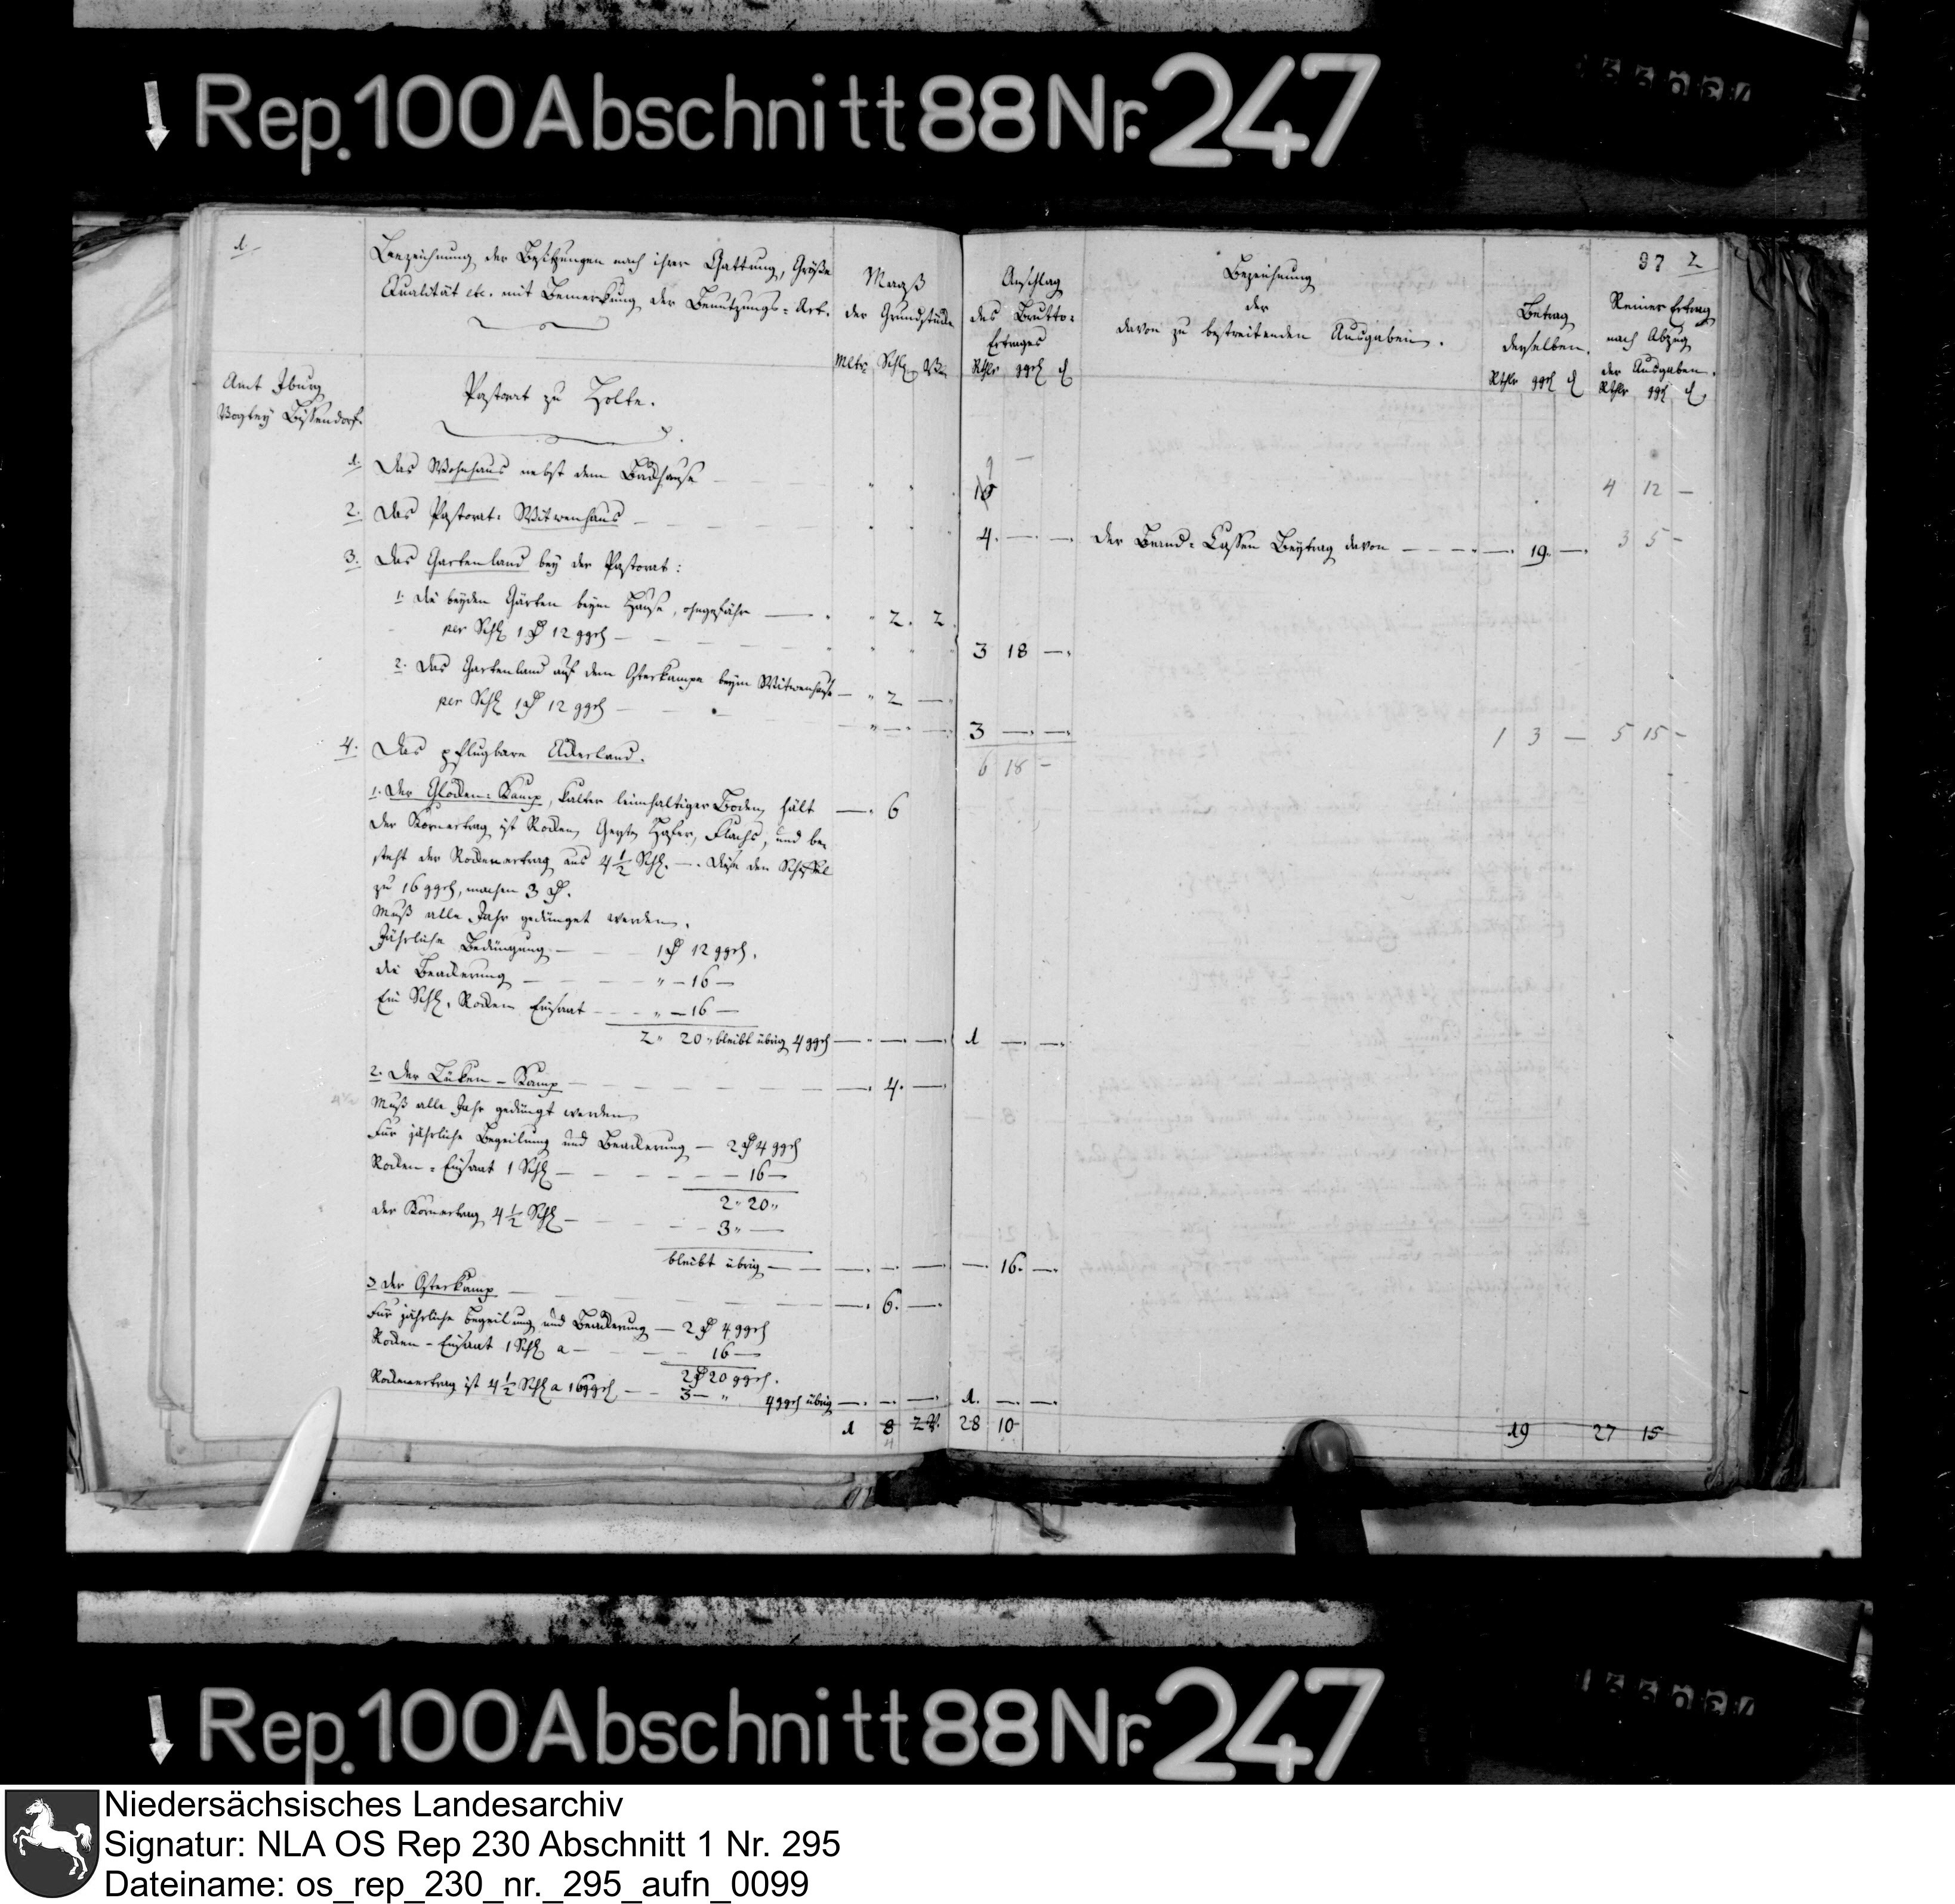 ↓ Rep. 100 Abschnitt 88 Nr. 247
1.
Bezeichnung der Besitzungen nach ihrer Gattung, Größe
Qualität etc. mit Bemerkung der Benutzungs-Art.
Maaß
der Grundstücke
Mltr. Schfl. Vtl.
Anschlag
des Brutto-
Ertrages
Rthlr ggr ₰
Bezeichnung
der
davon zu bestreitenden Ausgaben.
Betrag
derselben.
Rthlr ggr ₰
37 2
Reiner Ertrag
nach Abzug
der Ausgaben.
Rthlr ggr ₰
Amt Iburg
Vogtey Bissendorf.
Pastorat zu Holte.
1. Das Wohnhaus nebst dem Backhause 9 — 4 12 —
2. Das Pastorat-Witwenhaus — 4. — — Der Brand-Cassen Beytrag davon — — — 19. — 3 5 —
3. Das Gartenland bey der Pastorat:
1. die beyden Gärten beym Hause, ohngefähr — 2. 2
per Schfl 1 rt 12 ggr — 3 18 —
2. Das Gartenland auf dem Osterkampe beym Witwenhause — 2 —
per Schfl 1 rt 12 ggr — 3 — — 1 3 — 5 15 —
6 18 —
4. Das pflugbare Ackerland.
1. Der Glocken-Kamp, kalter leimhaltiger Boden, hält — 6
Der Kornertrag ist Rocken, Gerste, Hafer, Flachs, und be-
steht der Rockenertrag aus 4 1/2 Schfl. — Diese den Scheffel
zu 16 ggr, machen 3 rt.
Muß alle Jahr gedünget werden.
Jährliche Bedüngung — 1 rt 12 ggr.
die Beackerung — " — 16 —
Ein Schfl. Rocken Einsaat — " — 16 —
2 " 20 " bleibt übrig 4 ggr — — — 1 — —
2. Der Lüken-Kamp — 4. —
Muß alle Jahr gedüngt werden
Für jährliche Begeilung und Beackerung — 2 rt 4 ggr
Rocken-Einsaat 1 Schfl — 16 —
2 " 20 "
der Kornertrag 4 1/2 Schfl — 3 " —
bleibt übrig — — — — — 16. —
3 der Osterkamp — 6. —
Für jährliche Begeilung und Beackerung — 2 rt 4 ggr
Rocken-Einsaat 1 Schfl a — 16 —
2 rt 20 ggr.
Rockenertrag ist 4 1/2 Schfl a 16 ggr — 3 — " 4 ggr übrig — — — 1. — —
1 8 2 28 10 19 27 15
↓ Rep. 100 Abschnitt 88 Nr. 247
Niedersächsisches Landesarchiv
Signatur: NLA OS Rep 230 Abschnitt 1 Nr. 295
Dateiname: os_rep_230_nr._295_aufn_0099